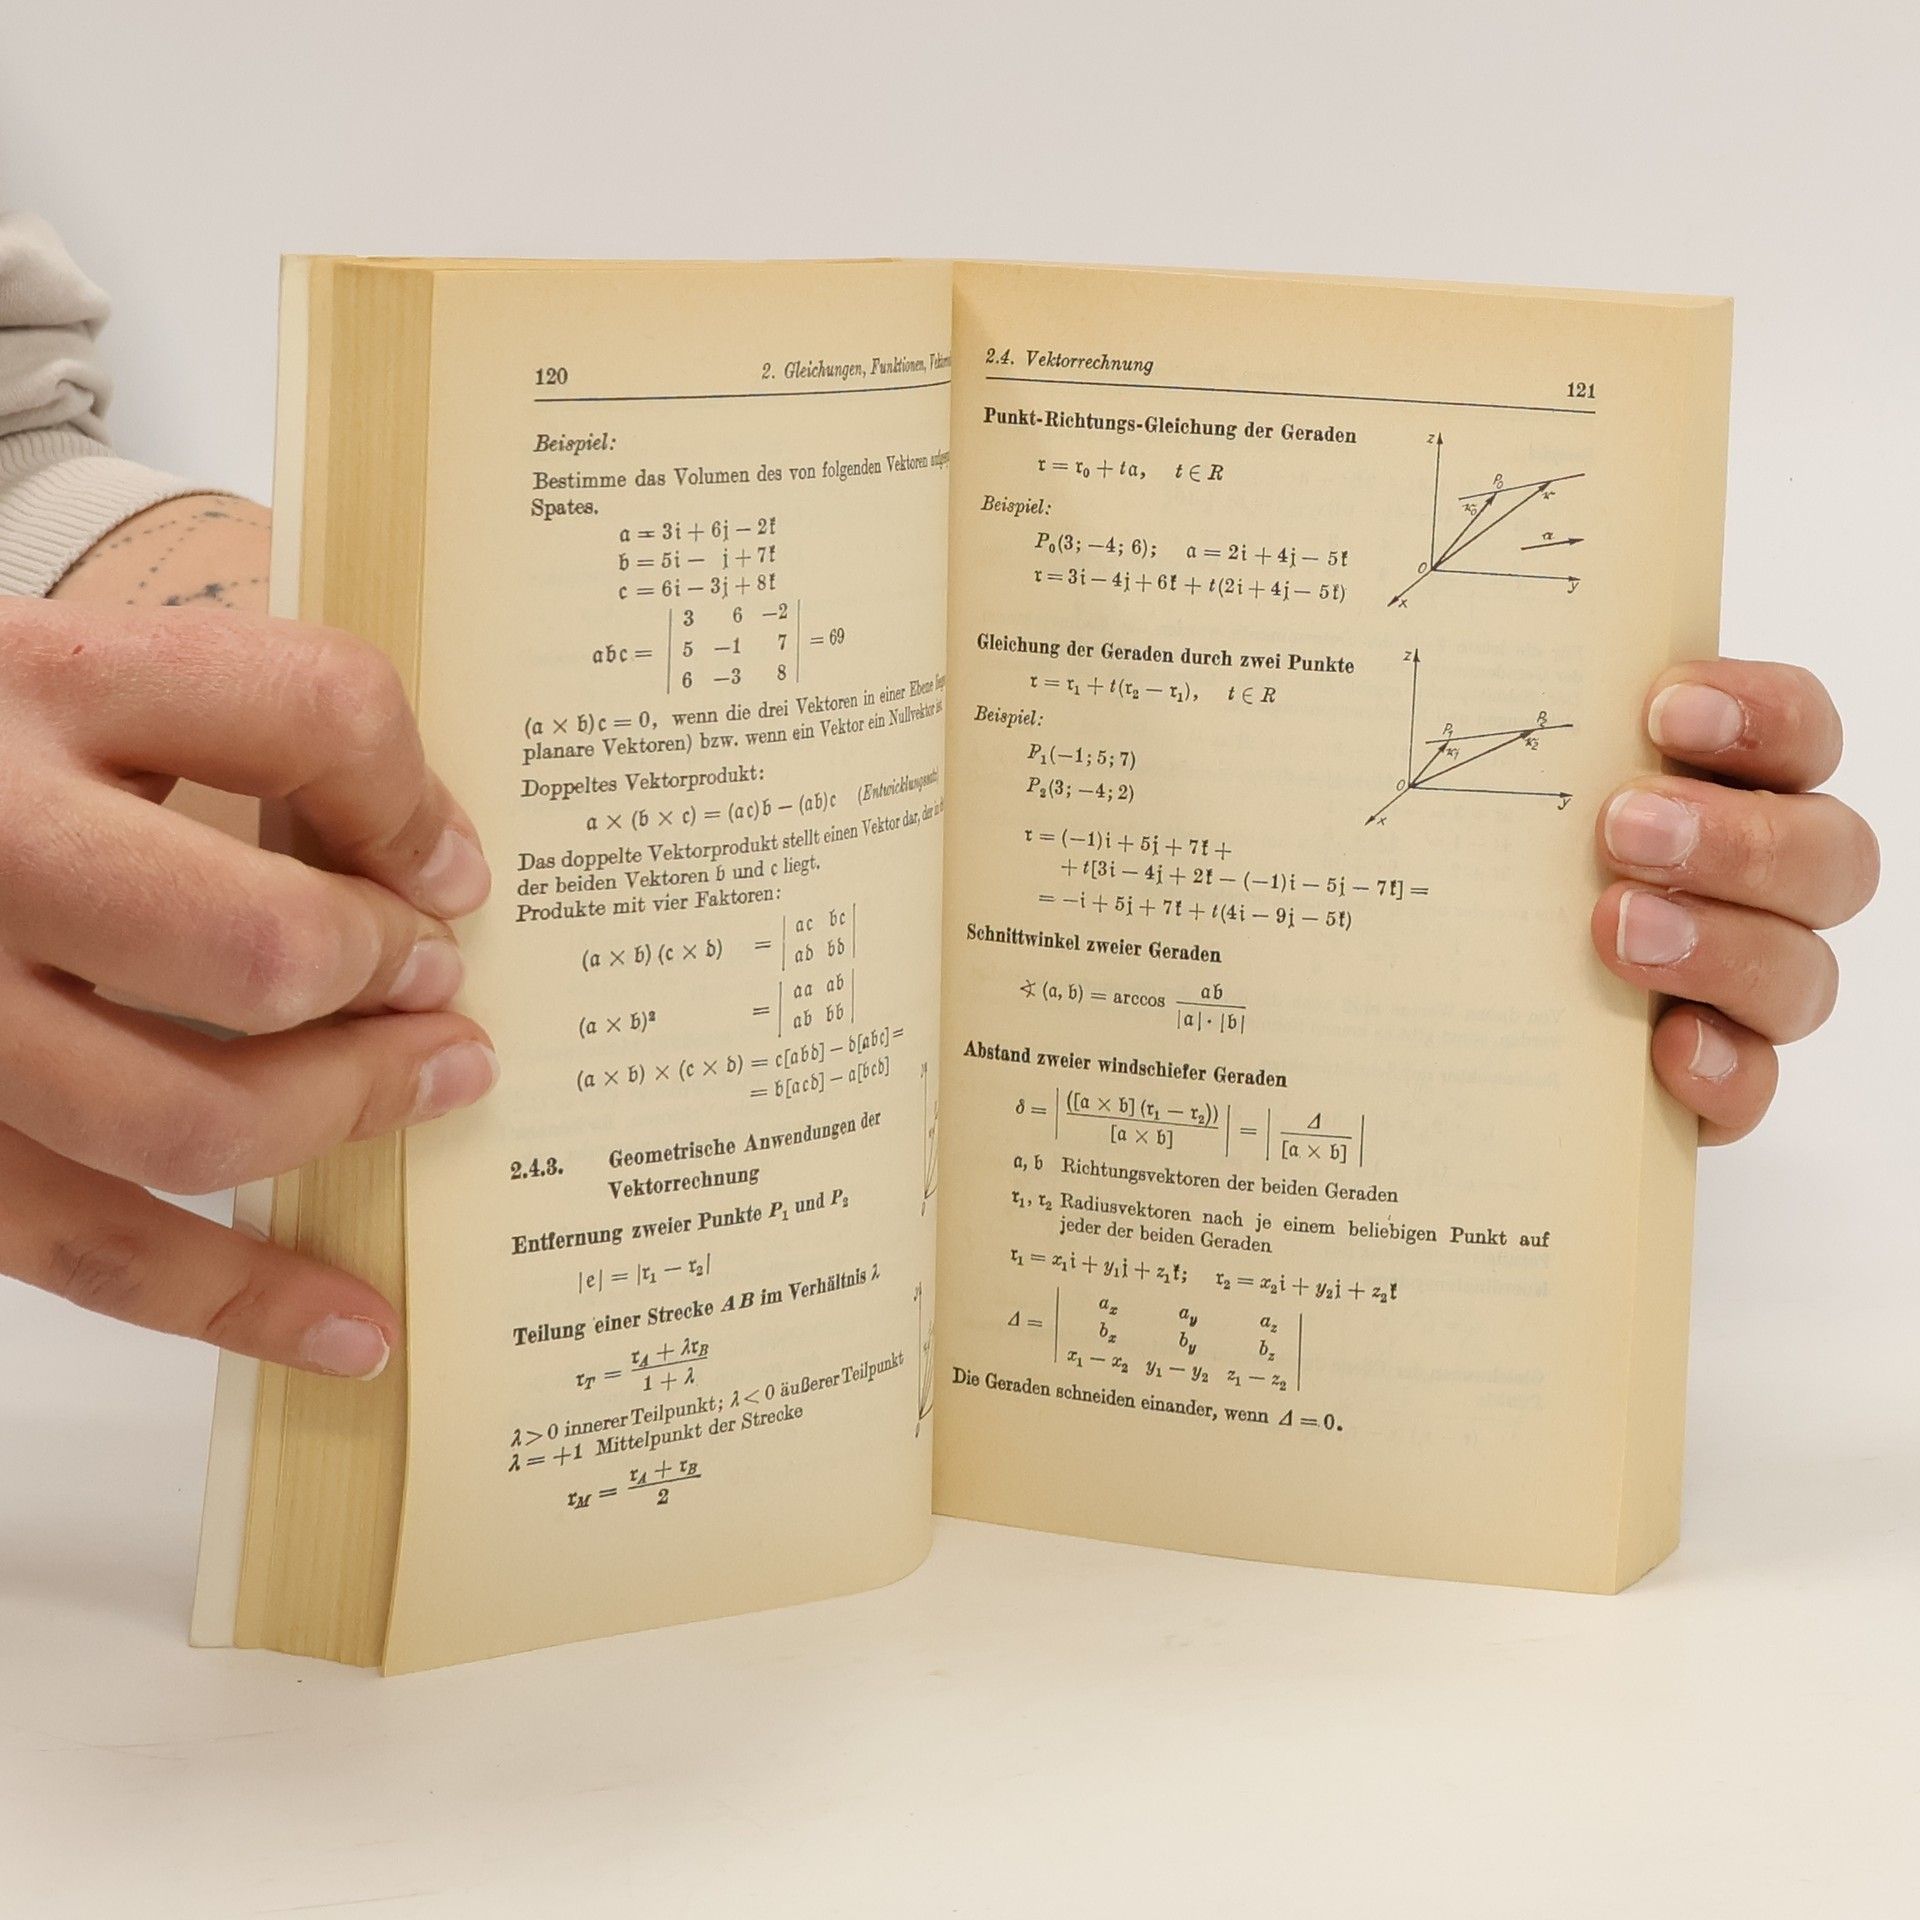 120 2. Gleichungen, Funktionen,
Beispiel:
Bestimme das Volumen des von folgenden Vektoren
Spates.
𝔞 = 3𝔦 + 6𝔧 − 2𝔨
𝔟 = 5𝔦 − 𝔧 + 7𝔨
𝔠 = 6𝔦 − 3𝔧 + 8𝔨
| 3 6 −2 |
𝔞𝔟𝔠 = | 5 −1 7 | = 69
| 6 −3 8 |
(𝔞 × 𝔟)𝔠 = 0, wenn die drei Vektoren in einer Ebene
planare Vektoren) bzw. wenn ein Vektor ein Nullvektor ist.
Doppeltes Vektorprodukt:
𝔞 × (𝔟 × 𝔠) = (𝔞𝔠)𝔟 − (𝔞𝔟)𝔠 (Entwicklungssatz)
Das doppelte Vektorprodukt stellt einen Vektor dar, der in
der beiden Vektoren 𝔟 und 𝔠 liegt.
Produkte mit vier Faktoren:
(𝔞 × 𝔟) (𝔠 × 𝔡) = | 𝔞𝔠 𝔟𝔠 |
| 𝔞𝔡 𝔟𝔡 |
(𝔞 × 𝔟)² = | 𝔞𝔞 𝔞𝔟 |
| 𝔞𝔟 𝔟𝔟 |
(𝔞 × 𝔟) × (𝔠 × 𝔡) = 𝔠[𝔞𝔟𝔡] − 𝔡[𝔞𝔟𝔠] =
= 𝔟[𝔞𝔠𝔡] − 𝔞[𝔟𝔠𝔡]
2.4.3. Geometrische Anwendungen der
Vektorrechnung
Entfernung zweier Punkte P₁ und P₂
|𝔢| = |𝔯₁ − 𝔯₂|
Teilung einer Strecke AB im Verhältnis λ
𝔯_T = (𝔯_A + λ𝔯_B) / (1 + λ)
λ > 0 innerer Teilpunkt; λ < 0 äußerer Teilpunkt
λ = +1 Mittelpunkt der Strecke
𝔯_M = (𝔯_A + 𝔯_B) / 2
2.4. Vektorrechnung 121
Punkt-Richtungs-Gleichung der Geraden
𝔯 = 𝔯₀ + t𝔞, t ∈ R
Beispiel:
P₀(3; −4; 6); 𝔞 = 2𝔦 + 4𝔧 − 5𝔨
𝔯 = 3𝔦 − 4𝔧 + 6𝔨 + t(2𝔦 + 4𝔧 − 5𝔨)
z P₀ 𝔯₀ 𝔯 𝔞 0 y x
Gleichung der Geraden durch zwei Punkte
𝔯 = 𝔯₁ + t(𝔯₂ − 𝔯₁), t ∈ R
Beispiel:
P₁(−1; 5; 7)
P₂(3; −4; 2)
z P₁ P₂ 𝔯₁ 𝔯₂ 0 y x
𝔯 = (−1)𝔦 + 5𝔧 + 7𝔨 +
+ t[3𝔦 − 4𝔧 + 2𝔨 − (−1)𝔦 − 5𝔧 − 7𝔨] =
= −𝔦 + 5𝔧 + 7𝔨 + t(4𝔦 − 9𝔧 − 5𝔨)
Schnittwinkel zweier Geraden
∢ (𝔞, 𝔟) = arccos 𝔞𝔟 / (|𝔞| · |𝔟|)
Abstand zweier windschiefer Geraden
δ = | ([𝔞 × 𝔟] (𝔯₁ − 𝔯₂)) / [𝔞 × 𝔟] | = | Δ / [𝔞 × 𝔟] |
𝔞, 𝔟 Richtungsvektoren der beiden Geraden
𝔯₁, 𝔯₂ Radiusvektoren nach je einem beliebigen Punkt auf
jeder der beiden Geraden
𝔯₁ = x₁𝔦 + y₁𝔧 + z₁𝔨; 𝔯₂ = x₂𝔦 + y₂𝔧 + z₂𝔨
| a_x a_y a_z |
Δ = | b_x b_y b_z |
| x₁ − x₂ y₁ − y₂ z₁ − z₂ |
Die Geraden schneiden einander, wenn Δ = 0.